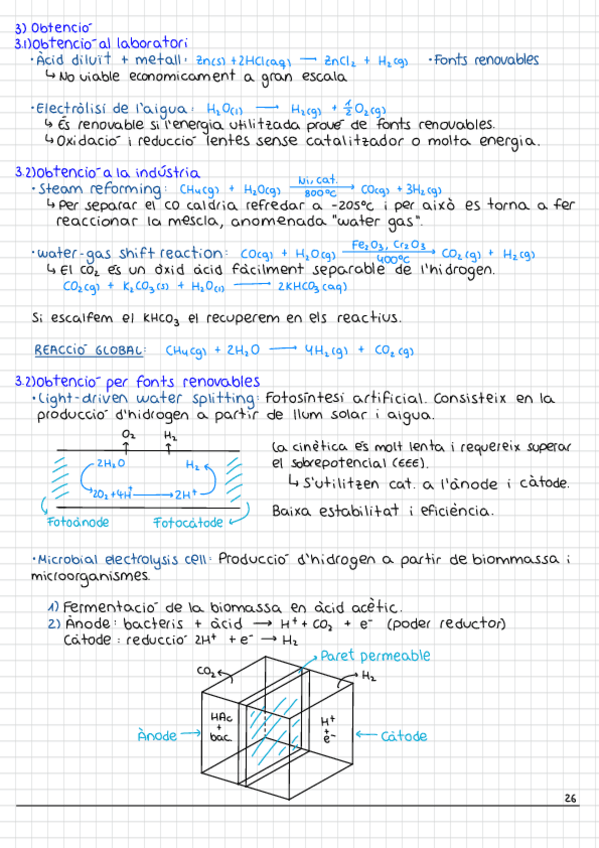 3) Obtenció
3.1) Obtenció al laboratori
· Àcid diluït + metall: Zn(s) + 2HCl(aq) → ZnCl₂ + H₂(g) · Fonts renovables
↳ No viable economicament a gran escala
· Electròlisi de l'aigua: H₂O(l) → H₂(g) + ½O₂(g)
↳ És renovable si l'energia utilitzada prové de fonts renovables.
↳ Oxidació i reducció lentes sense catalitzador o molta energia.
3.2) Obtenció a la indústria
· Steam reforming: CH₄(g) + H₂O(g) Ni, cat. → 800ºC CO(g) + 3H₂(g)
↳ Per separar el CO caldria refredar a -205ºC i per això es torna a fer
reaccionar la mescla, anomenada "water gas".
· water-gas shift reaction: CO(g) + H₂O(g) Fe₂O₃, Cr₂O₃ → 400ºC CO₂(g) + H₂(g)
↳ El CO₂ és un òxid àcid fàcilment separable de l'hidrogen.
CO₂(g) + K₂CO₃(s) + H₂O(l) → 2KHCO₃(aq)
Si escalfem el KHCO₃ el recuperem en els reactius.
REACCIÓ GLOBAL: CH₄(g) + 2H₂O → 4H₂(g) + CO₂(g)
3.2) Obtenció per fonts renovables
· Light-driven water splitting: Fotosíntesi artificial. Consisteix en la
producció d'hidrogen a partir de llum solar i aigua.
O₂ H₂
2H₂O H₂
2O₂+4H → 2H⁺
Fotoànode Fotocàtode
La cinètica és molt lenta i requereix superar
el sobrepotencial (EEE).
↳ S'utilitzen cat. a l'ànode i càtode.
Baixa estabilitat i eficiència.
· Microbial electrolysis cell: Producció d'hidrogen a partir de biommassa i
microorganismes.
1) Fermentació de la biomassa en àcid acètic.
2) Ànode: bacteris + àcid → H⁺ + CO₂ + e⁻ (poder reductor)
Càtode: reducció 2H⁺ + e⁻ → H₂
Paret permeable
CO₂ H₂
HAc
+
bac.
H⁺
+
e⁻
Ànode → ← Càtode
26